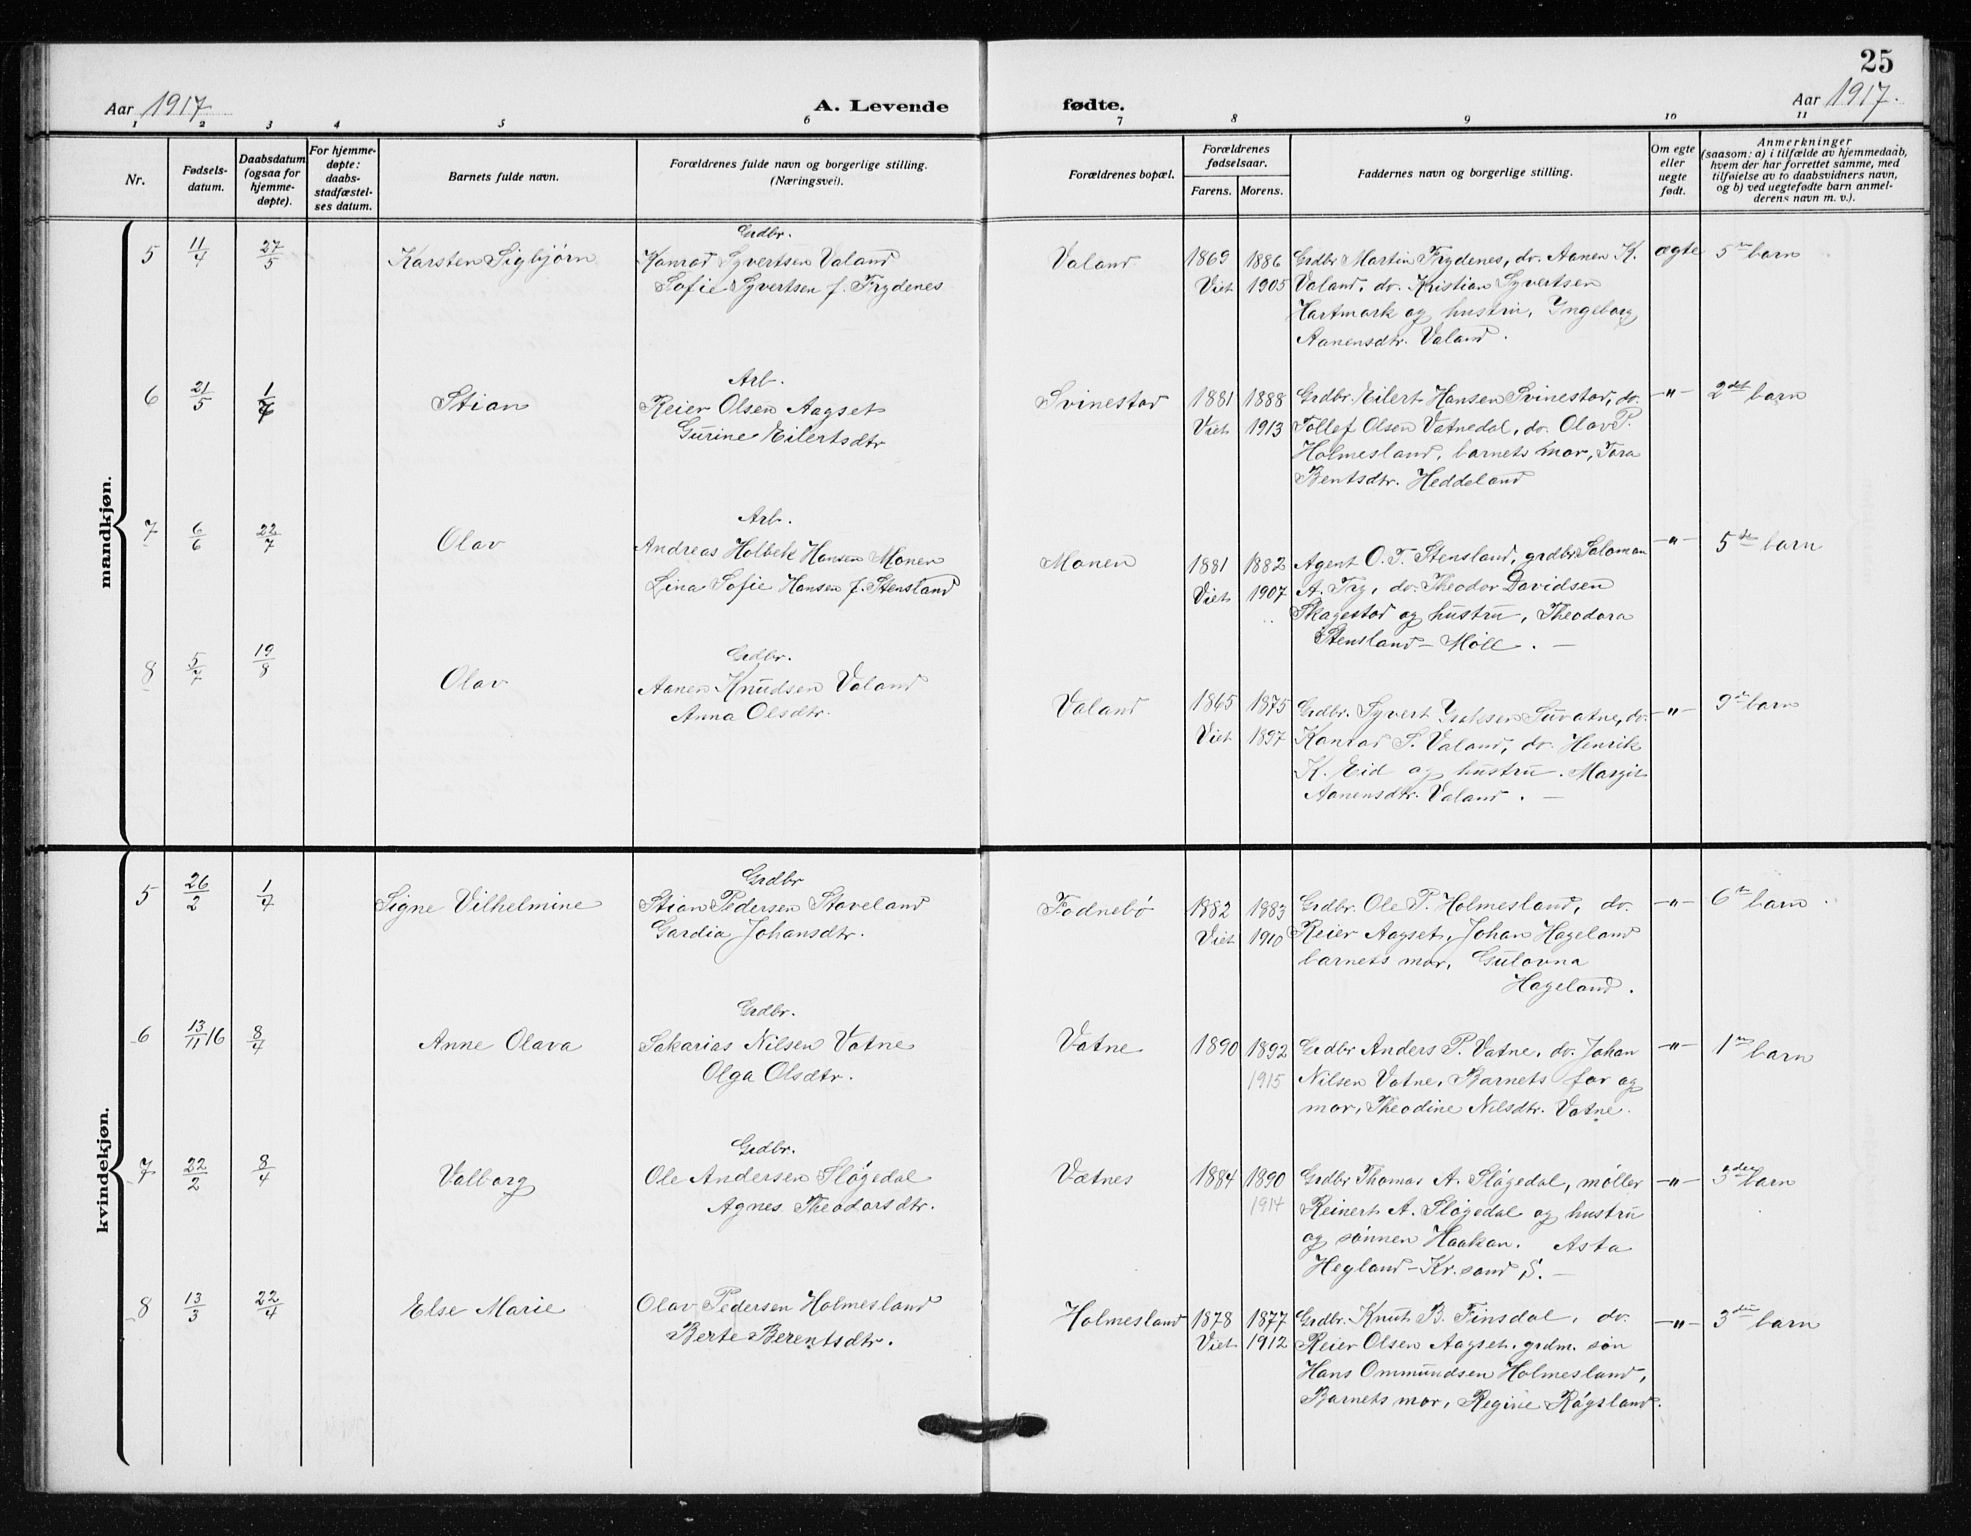 25
Aar 1917
A. Levende
fødte.
Aar 1917.
1 2 3 4 5 6 7 8 9 10 11
Nr.
Fødsels-
datum.
Daabsdatum
(ogsaa for
hjemme-
døpte).
For hjemme-
døpte:
daabs-
stadfæstel-
ses datum.
Barnets fulde navn.
Forældrenes fulde navn og borgerlige stilling.
(Næringsvei).
Forældrenes bopæl.
Forældrenes
fødselsaar.
Farens. Morens.
Faddernes navn og borgerlige stilling.
Om egte
eller
uegte
født.
Anmerkninger
(saasom: a) i tilfælde av hjemmedaab,
hvem der har forrettet samme, med
tilføielse av to daabsvidners navn,
og b) ved uegtefødte barn anmel-
derens navn m. v.).
mandkjøn.
5 11/4 27/5 Karsten Sigbjørn
Grdbr.
Konrad Syvertsen Valand
Sofie Syvertsen f. Frydenes
Valand
1869 1886
Viet 1905
Grdbr Martin Frydenes, do. Aanen K.
Valand, do. Kristian Syvertsen
Hartmark og hustru, Ingeborg
Aanensdtr. Valand.
ægte 5te barn
6 21/5 1/7 Stian
Arb.
Reier Olsen Aagset
Gurine Eilertsdtr
Svinestad
1881 1888
Viet 1913
Grdbr. Eilert Hansen Svinestad, do.
Tollef Olsen Vatnedal, do. Olav P.
Holmesland, barnets mor, Tora
Bentsdtr. Heddeland
-"- 2det barn
7 6/6 22/7 Olav
Arb.
Andreas Holbek Hansen Monen
Lina Sofie Hansen f. Stensland
Monen
1881 1882
Viet 1907
Agent O. T. Stensland, grdbr. Saloman
A. Try, do. Theodor Davidsen
Skagestad og hustru, Theodora
Stensland - Møll. -
-"- 5te barn
8 5/7 19/8 Olav
Grdbr.
Aanen Knudsen Valand
Anna Olsdtr.
Valand
1865 1875
Viet 1897
Grdbr. Syvert Isaksen Suvatne, do.
Konrad S. Valand, do. Henrik
K. Eid og hustru. Margit
Aanensdtr. Valand. -
-"- 9de barn
kvindekjøn.
5 26/2 1/4 Signe Vilhelmine
Grdbr
Stian Pedersen Staveland
Gardia Johansdtr.
Fodnebø
1882 1883
Viet 1910
Grdbr. Ole P. Holmesland, do.
Reier Aagset, Johan Hageland
barnets mor, Gulovna
Hageland.
-"- 6te barn.
6 13/11 16 8/4 Anne Olava
Grdbr.
Sakarias Nilsen Vatne
Olga Olsdtr.
Vatne
1890 1892
1915
Grdbr Anders P. Vatne, do. Johan
Nilsen Vatne, Barnets far og
mor, Theodine Nilsdtr. Vatne.
-"- 1ste barn
7 22/2 8/4 Valborg
Grdbr.
Ole Andersen Sløgedal
Agnes Theodorsdtr.
Vætnes
1884 1890
1914
Grdbr Thomas A. Sløgedal, møller
Reinert A. Sløgedal og hustru
og sønnen Haakon. Asta
Hegland - Kr.sand S. -
-"- 3die barn
8 13/3 22/4 Else Marie
Olav Pedersen Holmesland
Berte Berentsdtr.
Holmesland
1878 1877
Viet 1912
Grdbr. Knut B. Finsdal, do.
Reier Olsen Aagset, grdm. søn
Hans Ommundsen Holmesland,
Barnets mor, Regine Røgsland.
-"- 3die barn